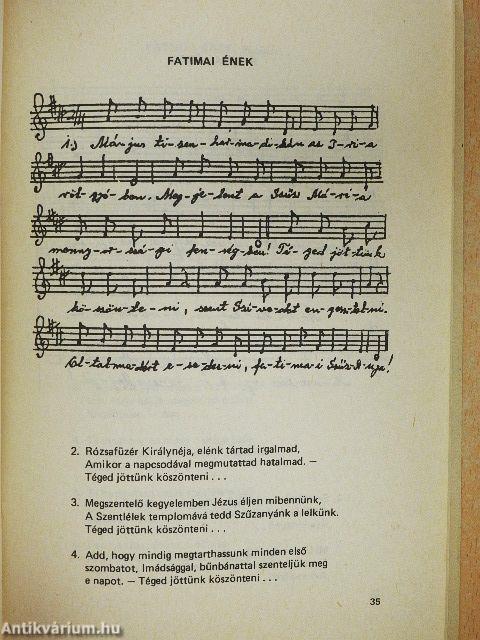 FATIMAI ÉNEK
2/4
1.) Má-jus ti-zen-har-ma-di-kán az I-ri-a
völ-gyé-ben. Meg-je-lent a Szűz Má-ri-a
meny-nye-i fen-ség-ben! Té-ged jöt-tünk
kö-szön-te-ni, szent Szí-ve-det en-gesz-tel-ni.
Ol-tal-ma-dért e-se-dez-ni, fa-ti-ma-i Szűz A-nya!
2. Rózsafüzér Királynéja, elénk tártad irgalmad,
Amikor a napcsodával megmutattad hatalmad. —
Téged jöttünk köszönteni . . .
3. Megszentelő kegyelemben Jézus éljen mibennünk,
A Szentlélek templomává tedd Szűzanyánk a lelkünk.
Téged jöttünk köszönteni . . .
4. Add, hogy mindig megtarthassunk minden első
szombatot, Imádsággal, bűnbánattal szenteljük meg
e napot. — Téged jöttünk köszönteni . . .
35
Antikvárium.hu